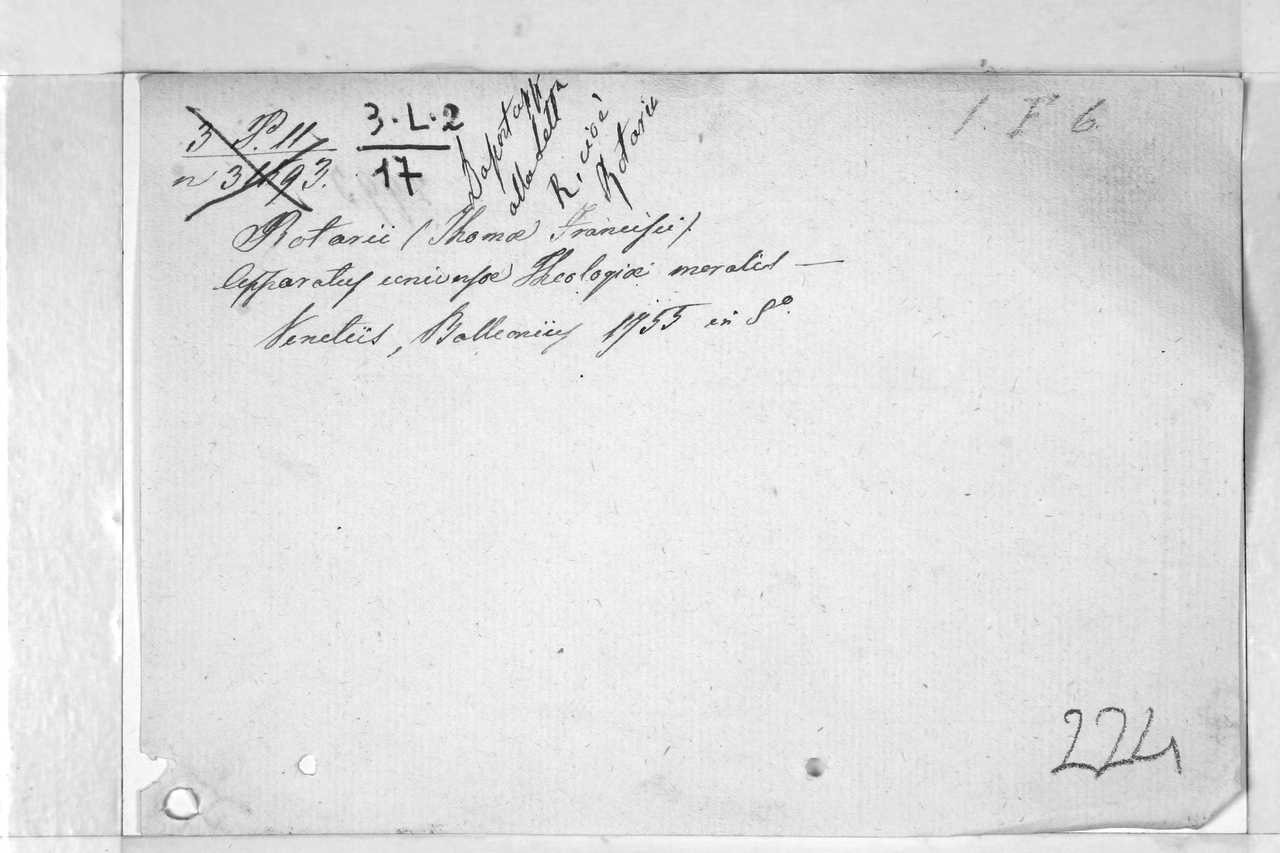 3 P. 11
n 31193.
3.L.2
17
alla Lett
R. cioè
Rotario
1. F 6.
Rotarii (Thomæ Francisci).
Apparatus universæ Theologiæ moralis —
Venetiis, Balleonius 1755 in 8º.
224